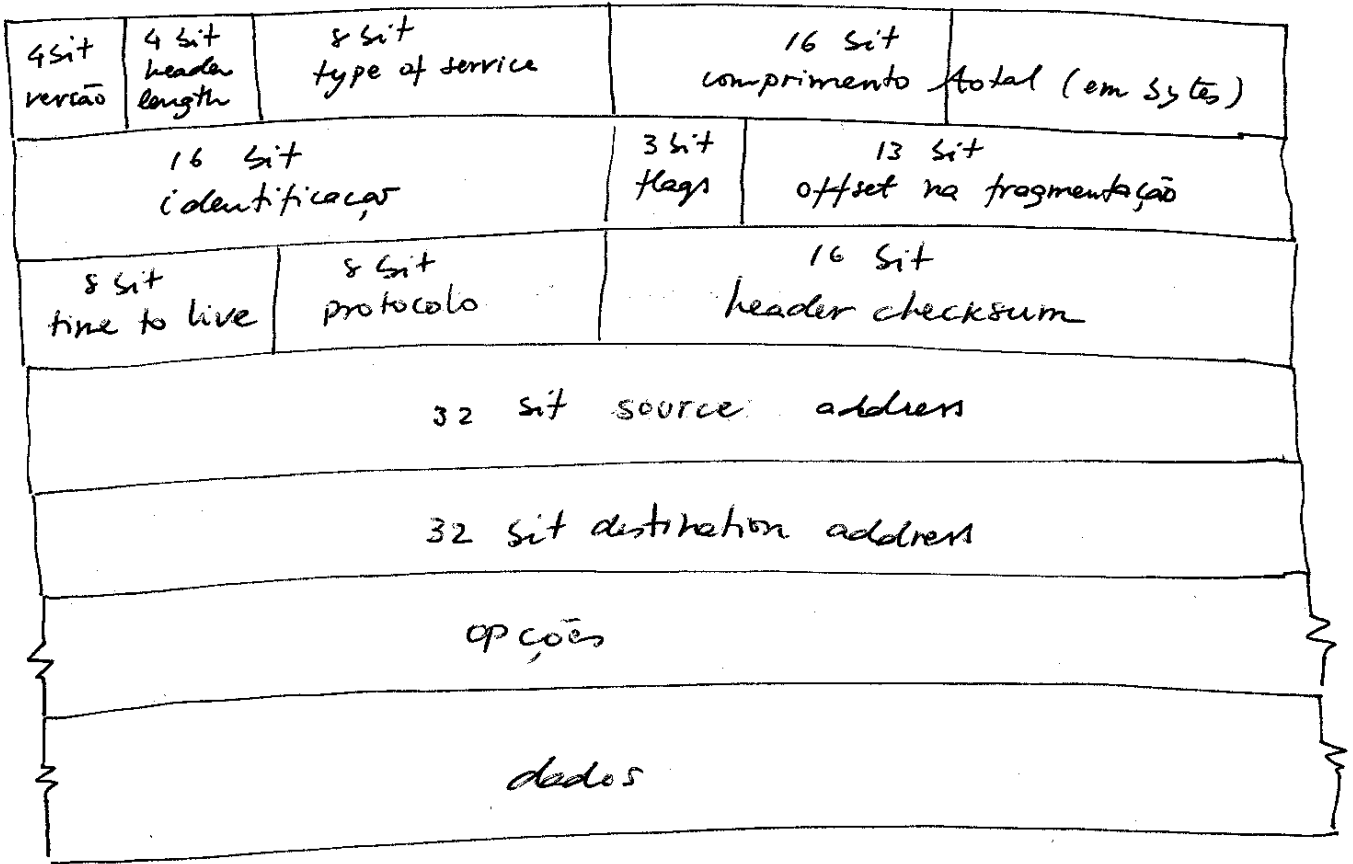 4 bit
versão
4 bit
header
length
8 bit
type of service
16 bit
comprimento total (em bytes)
16 bit
identificação
3 bit
flags
13 bit
offset na fragmentação
8 bit
time to live
8 bit
protocolo
16 bit
header checksum
32 bit source address
32 bit destination address
opções
dados